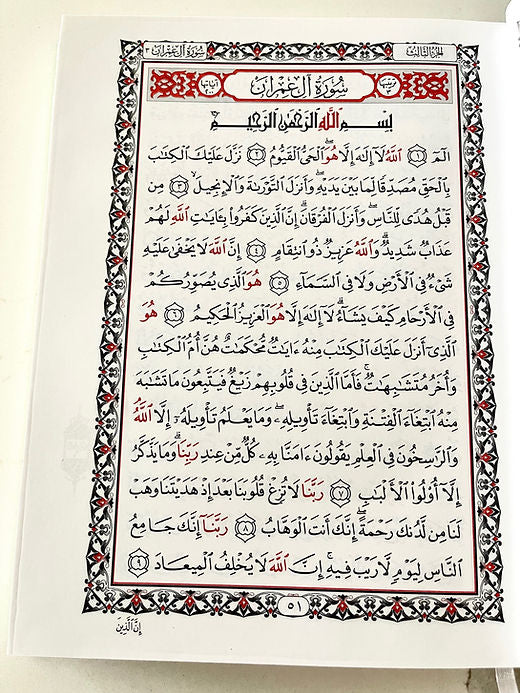 سورة آل عمران ٣ الجزء الثالث
ترتيبها ٣ سُورَةُ آلِ عِمْرَانَ آياتها ٢٠٠
بِسْمِ اللَّهِ الرَّحْمَٰنِ الرَّحِيمِ
الٓمٓ ١ اللَّهُ لَآ إِلَٰهَ إِلَّا هُوَ الْحَيُّ الْقَيُّومُ ٢ نَزَّلَ عَلَيْكَ الْكِتَٰبَ
بِالْحَقِّ مُصَدِّقًا لِّمَا بَيْنَ يَدَيْهِ وَأَنزَلَ التَّوْرَىٰةَ وَالْإِنجِيلَ ٣ مِن
قَبْلُ هُدًى لِّلنَّاسِ وَأَنزَلَ الْفُرْقَانَ إِنَّ الَّذِينَ كَفَرُوا بِـَٔايَٰتِ اللَّهِ لَهُمْ
عَذَابٌ شَدِيدٌ وَاللَّهُ عَزِيزٌ ذُو انتِقَامٍ ٤ إِنَّ اللَّهَ لَا يَخْفَىٰ عَلَيْهِ
شَىْءٌ فِي الْأَرْضِ وَلَا فِي السَّمَآءِ ٥ هُوَ الَّذِي يُصَوِّرُكُمْ
فِي الْأَرْحَامِ كَيْفَ يَشَآءُ لَآ إِلَٰهَ إِلَّا هُوَ الْعَزِيزُ الْحَكِيمُ ٦ هُوَ
الَّذِيٓ أَنزَلَ عَلَيْكَ الْكِتَٰبَ مِنْهُ ءَايَٰتٌ مُّحْكَمَٰتٌ هُنَّ أُمُّ الْكِتَٰبِ
وَأُخَرُ مُتَشَٰبِهَٰتٌ فَأَمَّا الَّذِينَ فِي قُلُوبِهِمْ زَيْغٌ فَيَتَّبِعُونَ مَا تَشَٰبَهَ
مِنْهُ ابْتِغَآءَ الْفِتْنَةِ وَابْتِغَآءَ تَأْوِيلِهِ وَمَا يَعْلَمُ تَأْوِيلَهُٓ إِلَّا اللَّهُ
وَالرَّٰسِخُونَ فِي الْعِلْمِ يَقُولُونَ ءَامَنَّا بِهِ كُلٌّ مِّنْ عِندِ رَبِّنَا وَمَا يَذَّكَّرُ
إِلَّآ أُولُوا الْأَلْبَٰبِ ٧ رَبَّنَا لَا تُزِغْ قُلُوبَنَا بَعْدَ إِذْ هَدَيْتَنَا وَهَبْ
لَنَا مِن لَّدُنكَ رَحْمَةً إِنَّكَ أَنتَ الْوَهَّابُ ٨ رَبَّنَآ إِنَّكَ جَامِعُ
النَّاسِ لِيَوْمٍ لَّا رَيْبَ فِيهِ إِنَّ اللَّهَ لَا يُخْلِفُ الْمِيعَادَ ٩
٥١
إِنَّ الَّذِينَ